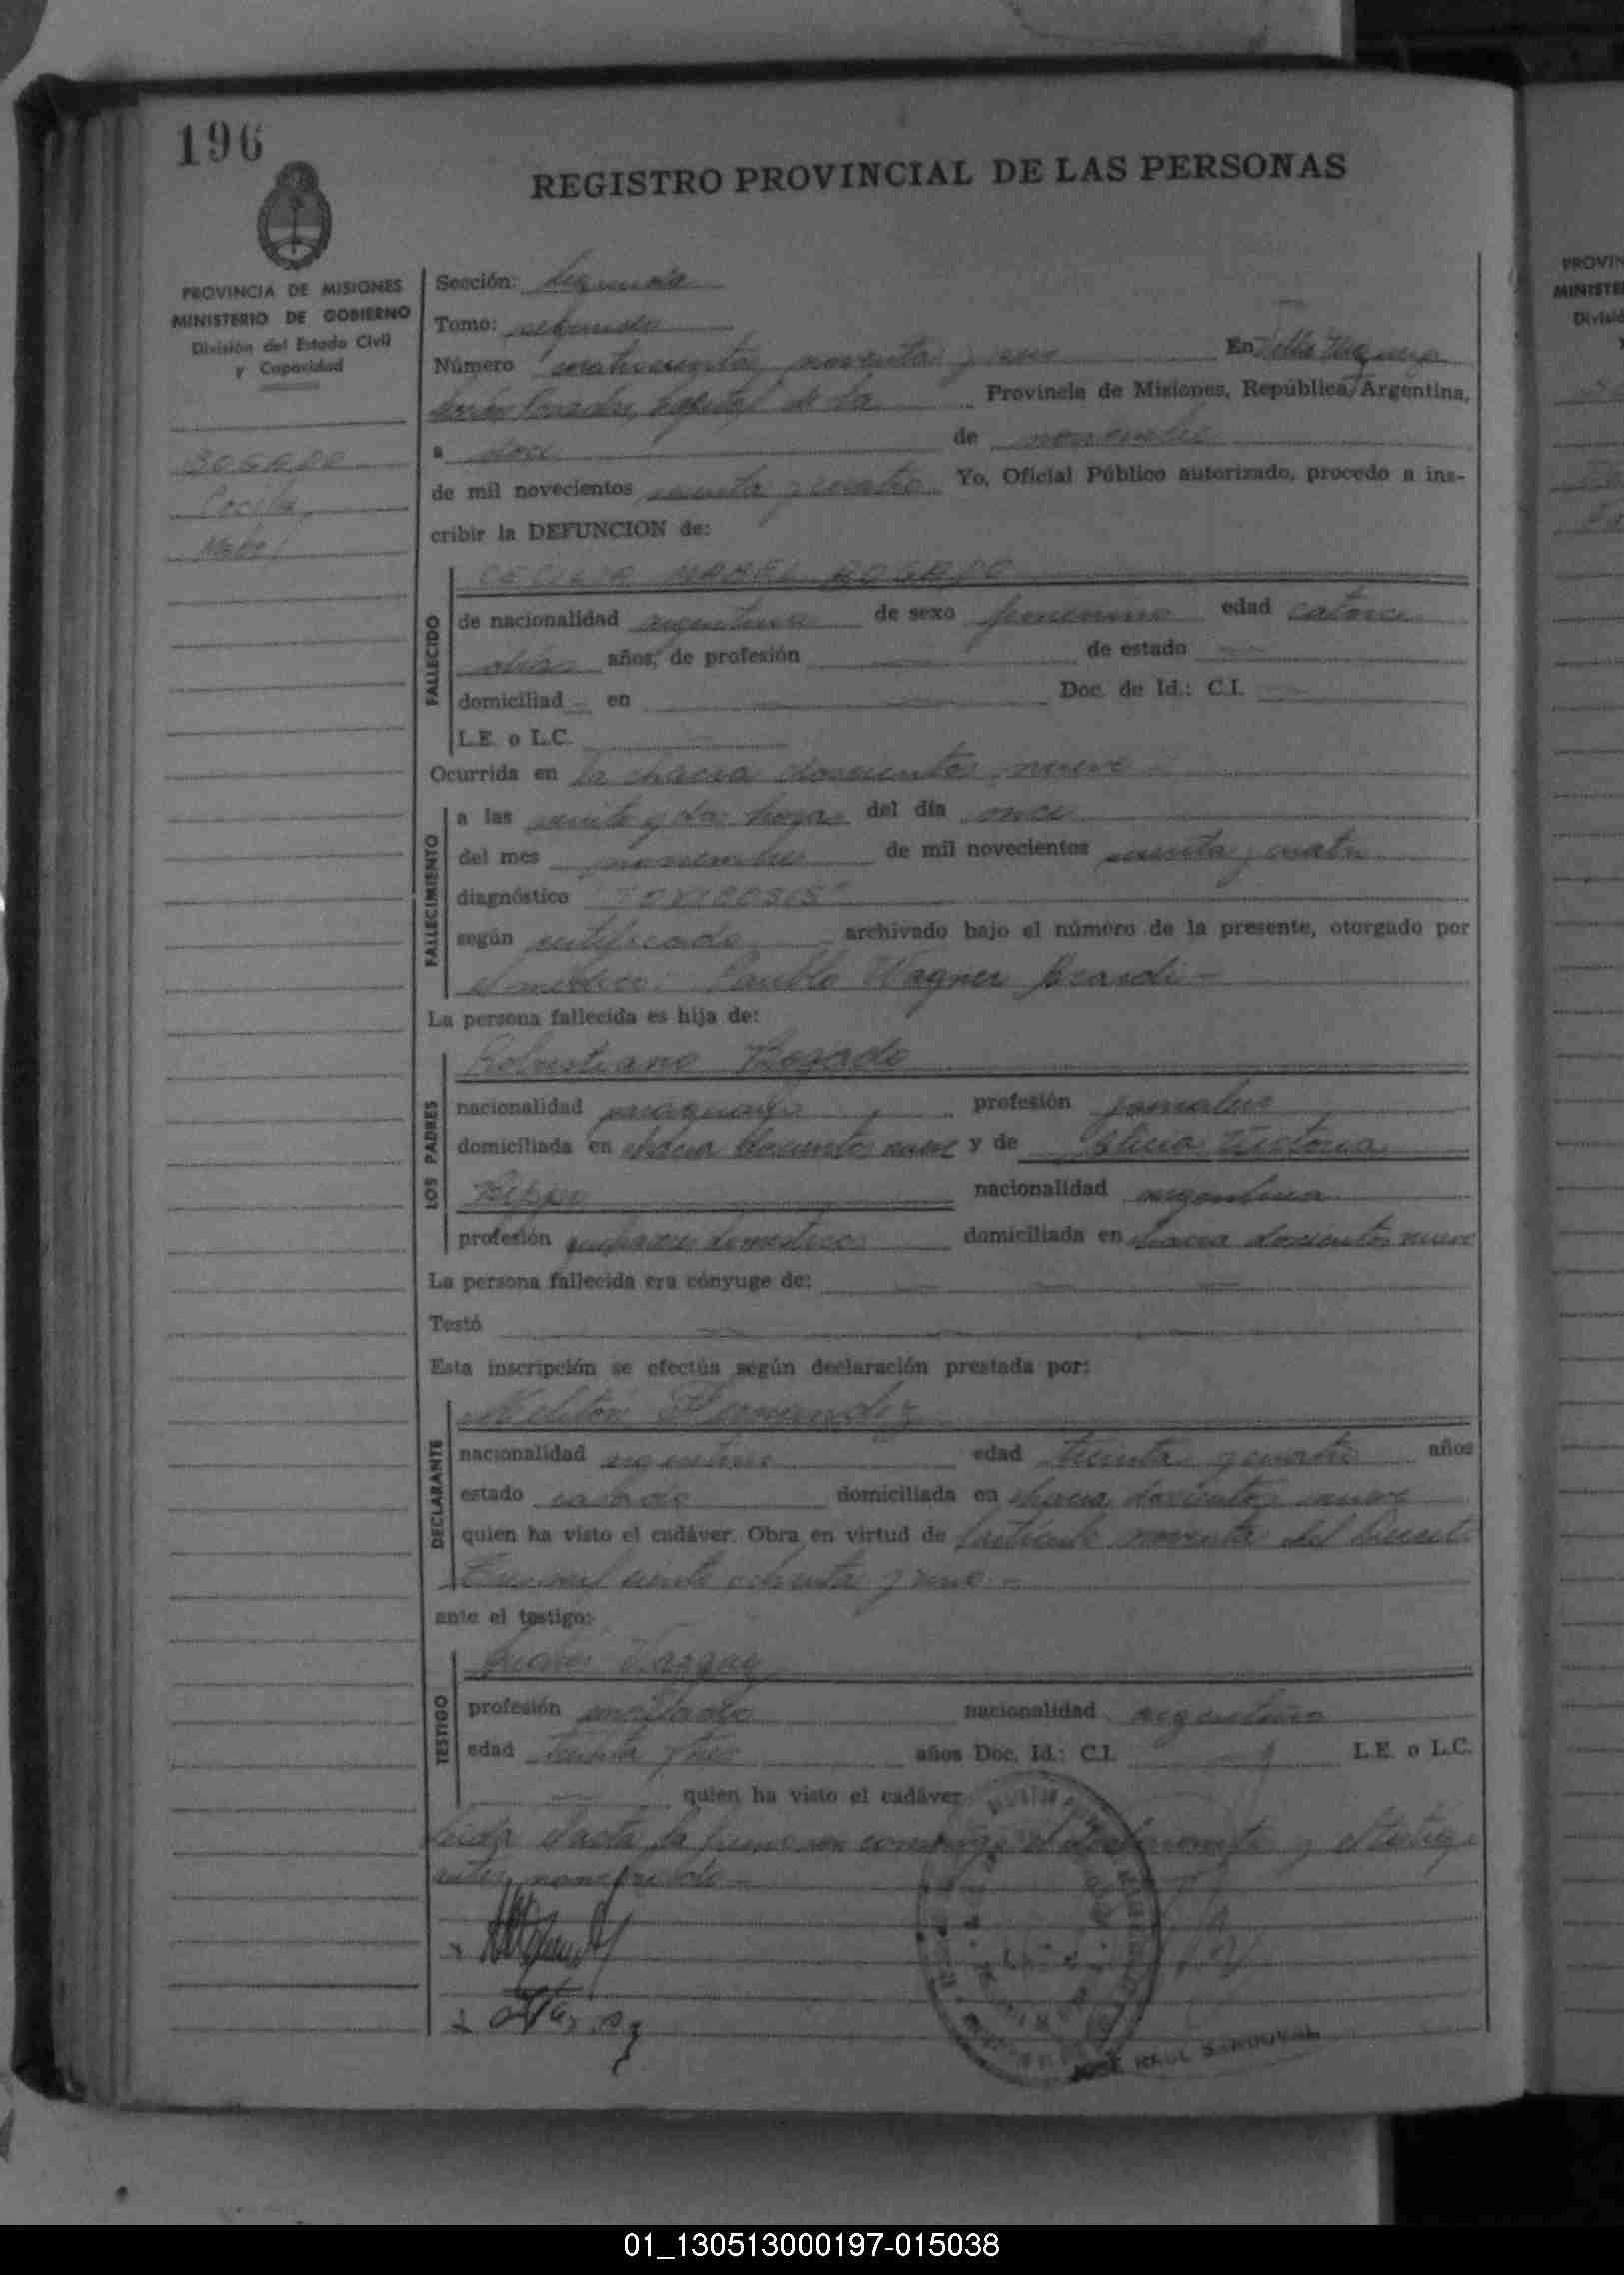 196
REGISTRO PROVINCIAL DE LAS PERSONAS
PROVINCIA DE MISIONES
MINISTERIO DE GOBIERNO
División del Estado Civil
y Capacidad
BOGADO
Cecilia
Mabel
Sección: segunda
Tomo: segundo
Número cuatrocientos noventa y uno En
de la Provincia de Misiones, República Argentina,
a doce de noviembre
de mil novecientos sesenta y cuatro Yo, Oficial Público autorizado, procedo a ins-
cribir la DEFUNCION de:
FALLECIDO
CECILIA MABEL BOGADO
de nacionalidad argentina de sexo femenino edad catorce
días años, de profesión de estado
domiciliad en Doc. de Id.: C.I.
L.E. o L.C.
Ocurrida en la chacra doscientos nueve
FALLECIMIENTO
a las veinte y dos horas del día once
del mes noviembre de mil novecientos sesenta y cuatro
diagnóstico "TOXICOSIS"
según certificado archivado bajo el número de la presente, otorgado por
el médico: Wagner
La persona fallecida es hija de:
LOS PADRES
Robustiano Bogado
nacionalidad paraguayo profesión jornalero
domiciliada en chacra doscientos nueve y de Alicia Victoria
nacionalidad argentina
profesión quehaceres domésticos domiciliada en chacra doscientos nueve
La persona fallecida era cónyuge de:
Testó
Esta inscripción se efectúa según declaración prestada por:
DECLARANTE
Melitón Fernández
nacionalidad argentino edad treinta y cuatro años
estado casado domiciliada en chacra doscientos nueve
quien ha visto el cadáver. Obra en virtud de artículo noventa del
ciento ochenta y nueve
ante el testigo:
TESTIGO
profesión empleado nacionalidad argentino
edad treinta y tres años Doc. Id.: C.I. L.E. o L.C.
quien ha visto el cadáver
Leida el acta la firman conmigo el declarante y el testigo
antes nombrado
JOSE RAUL SANDOVAL
PROVIN
MINISTE
Divisió
01_130513000197-015038